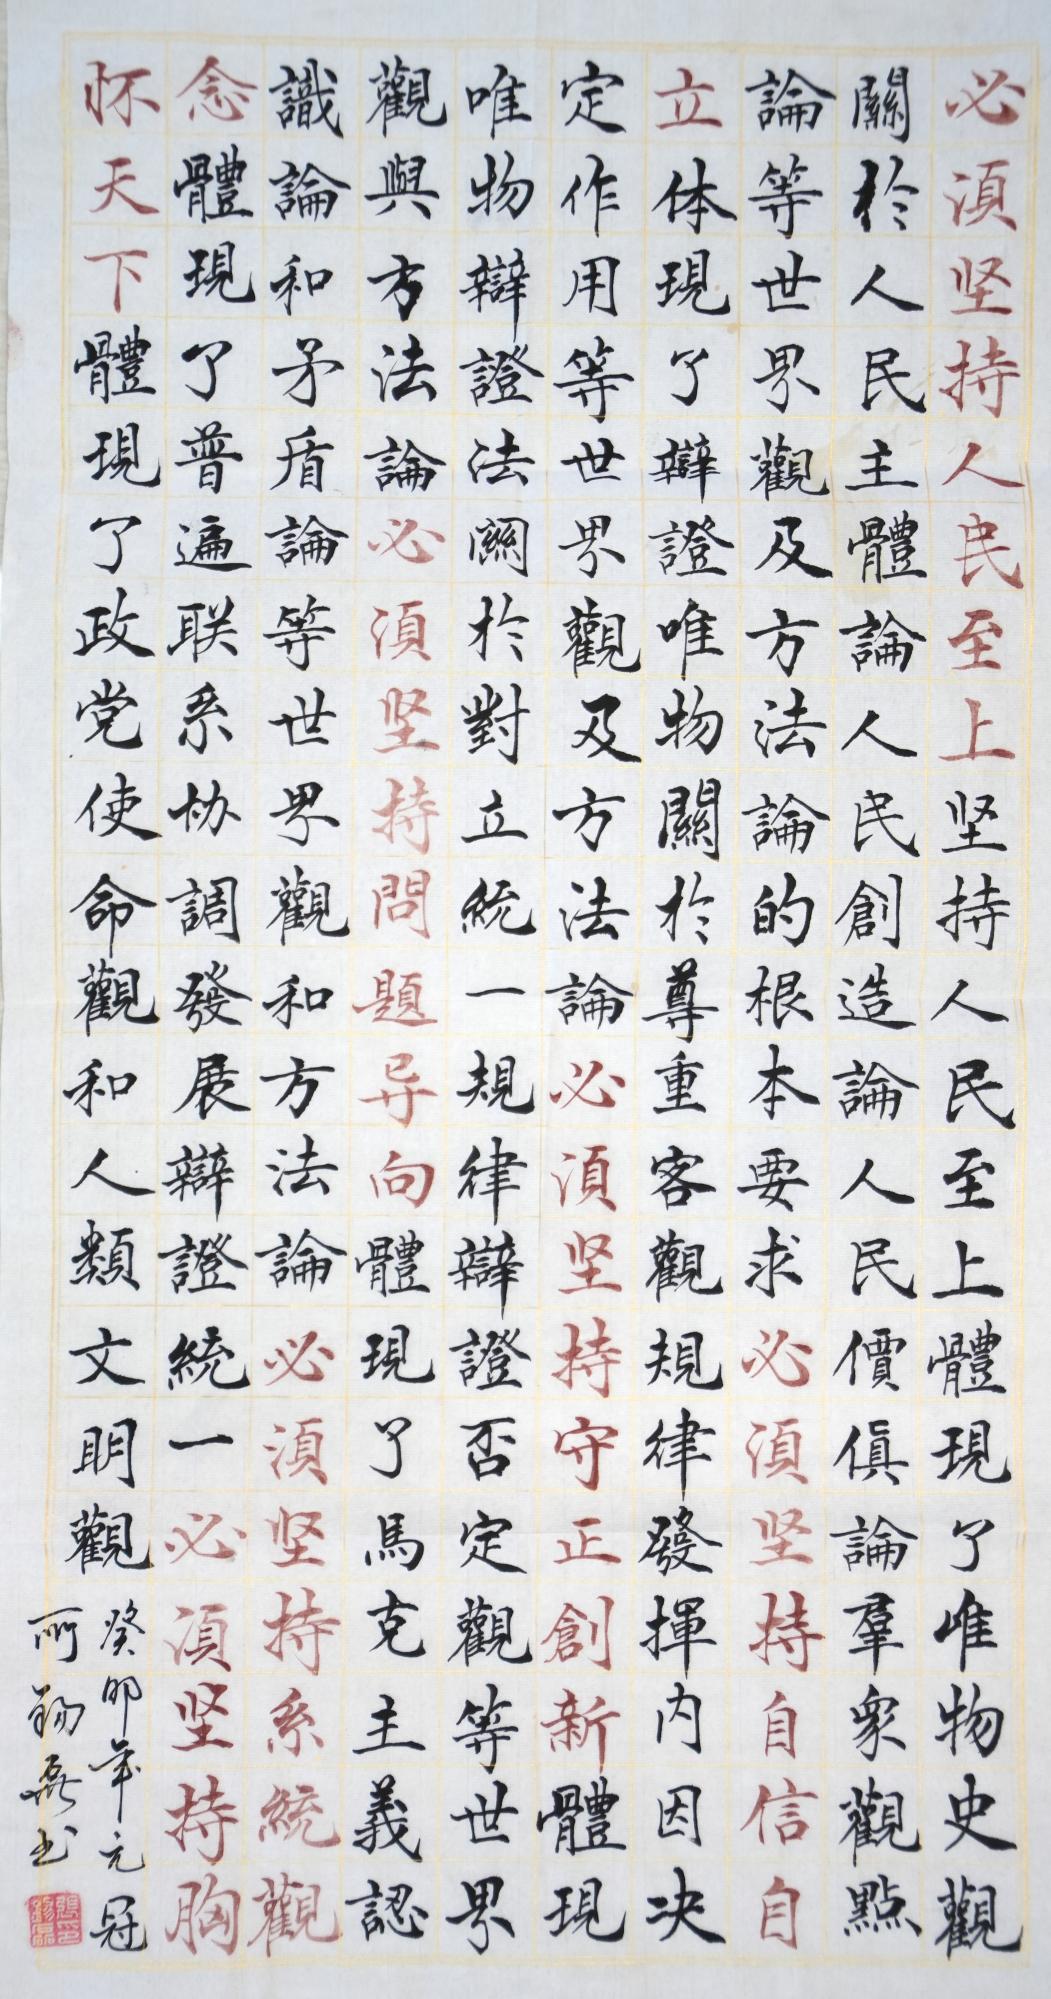 必須坚持人民至上坚持人民至上體現了唯物史觀
關於人民主體論人民創造論人民價値論羣衆觀點
論等世界觀及方法論的根本要求必須坚持自信自
立体現了辯證唯物關於尊重客觀規律發揮内因决
定作用等世界觀及方法論必須坚持守正創新體現
唯物辯證法關於對立統一規律辯證否定觀等世界
觀與方法論必須坚持問題导向體現了馬克主義認
識論和矛盾論等世界觀和方法論必須坚持系統觀
念體現了普遍联系协調發展辯證統一必須坚持胸
怀天下體現了政党使命觀和人類文明觀
癸卯年元冠